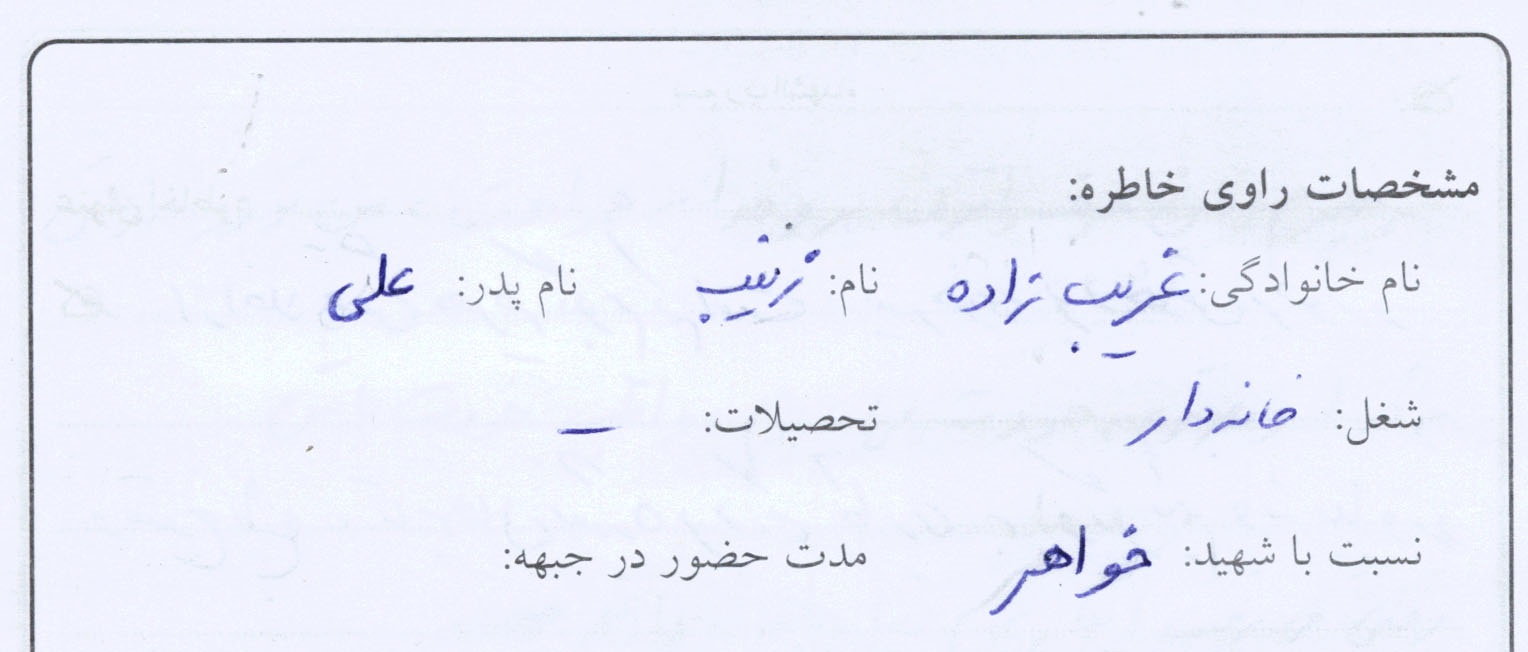 مشخصات راوی خاطره:
نام خانوادگی: غریب زاده نام: زینب نام پدر: علی
شغل: خانه‌دار تحصیلات: –
نسبت با شهید: خواهر مدت حضور در جبهه: